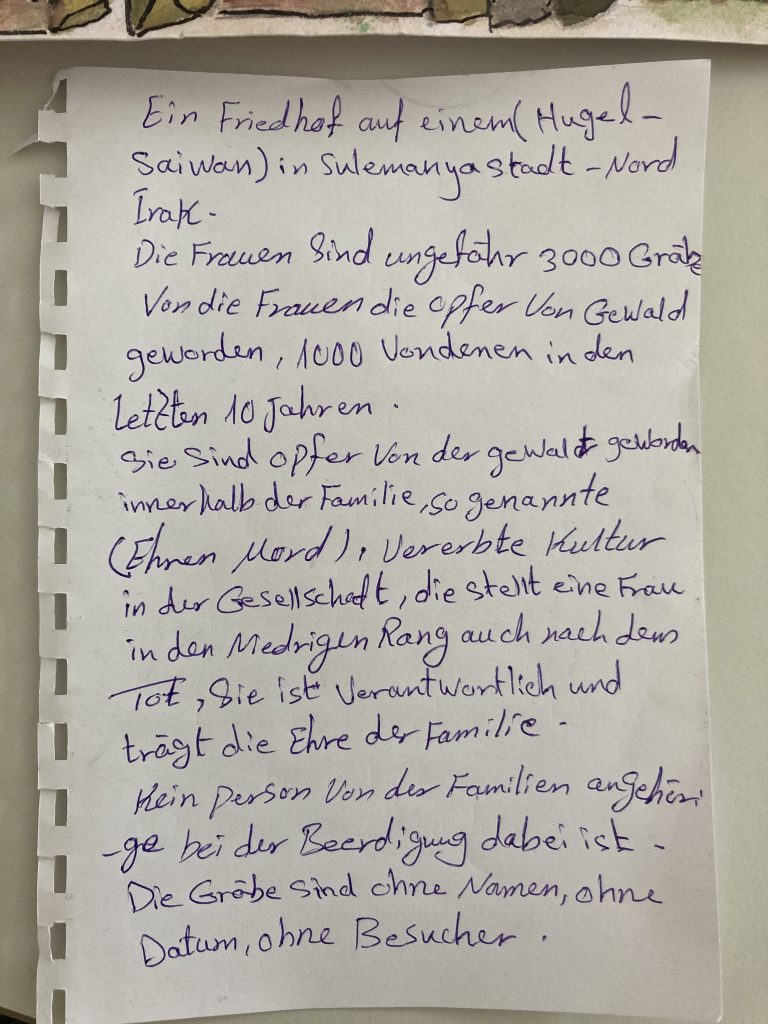 Ein Friedhof auf einem (Hugel-
Saiwan) in Sulemanyastadt - Nord
Irak.
Die Frauen Sind ungefähr 3000 Gräbe
Von die Frauen die opfer Von Gewald
geworden, 1000 Vondenen in den
Letzten 10 Jahren.
Sie Sind opfer Von der gewalt geworden
innerhalb der Familie, so genannte
(Ehren Mord), Vererbte Kultur
in der Gesellschaft, die stellt eine Frau
in den Niedrigen Rang auch nach dem
Tot, Sie ist Verantwortlich und
trägt die Ehre der Familie.
Kein person Von der Familien angehöri
-ge bei der Beerdigung dabei ist.
Die Gräbe Sind ohne Namen, ohne
Datum, ohne Besucher.